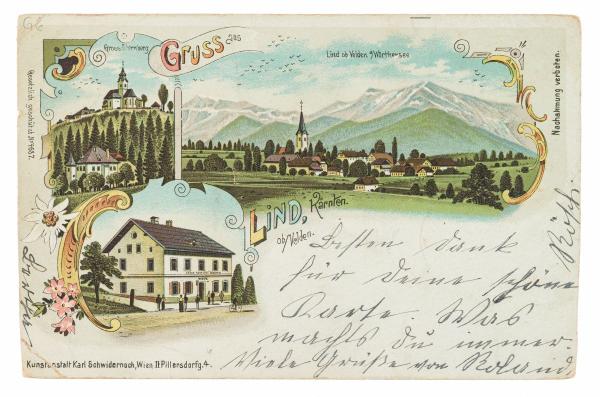 GRUSS aus
Lind ob Velden a/Wörthersee
Nachahmung verboten.
LIND,
Kärnten.
ob/Velden.
Besten Dank
für Deine schöne
Karte. Was
machst du immer.
Viele Grüße von Roland
Kunstanstalt Karl Schwidernoch, Wien II. Pillersdorfg. 4.